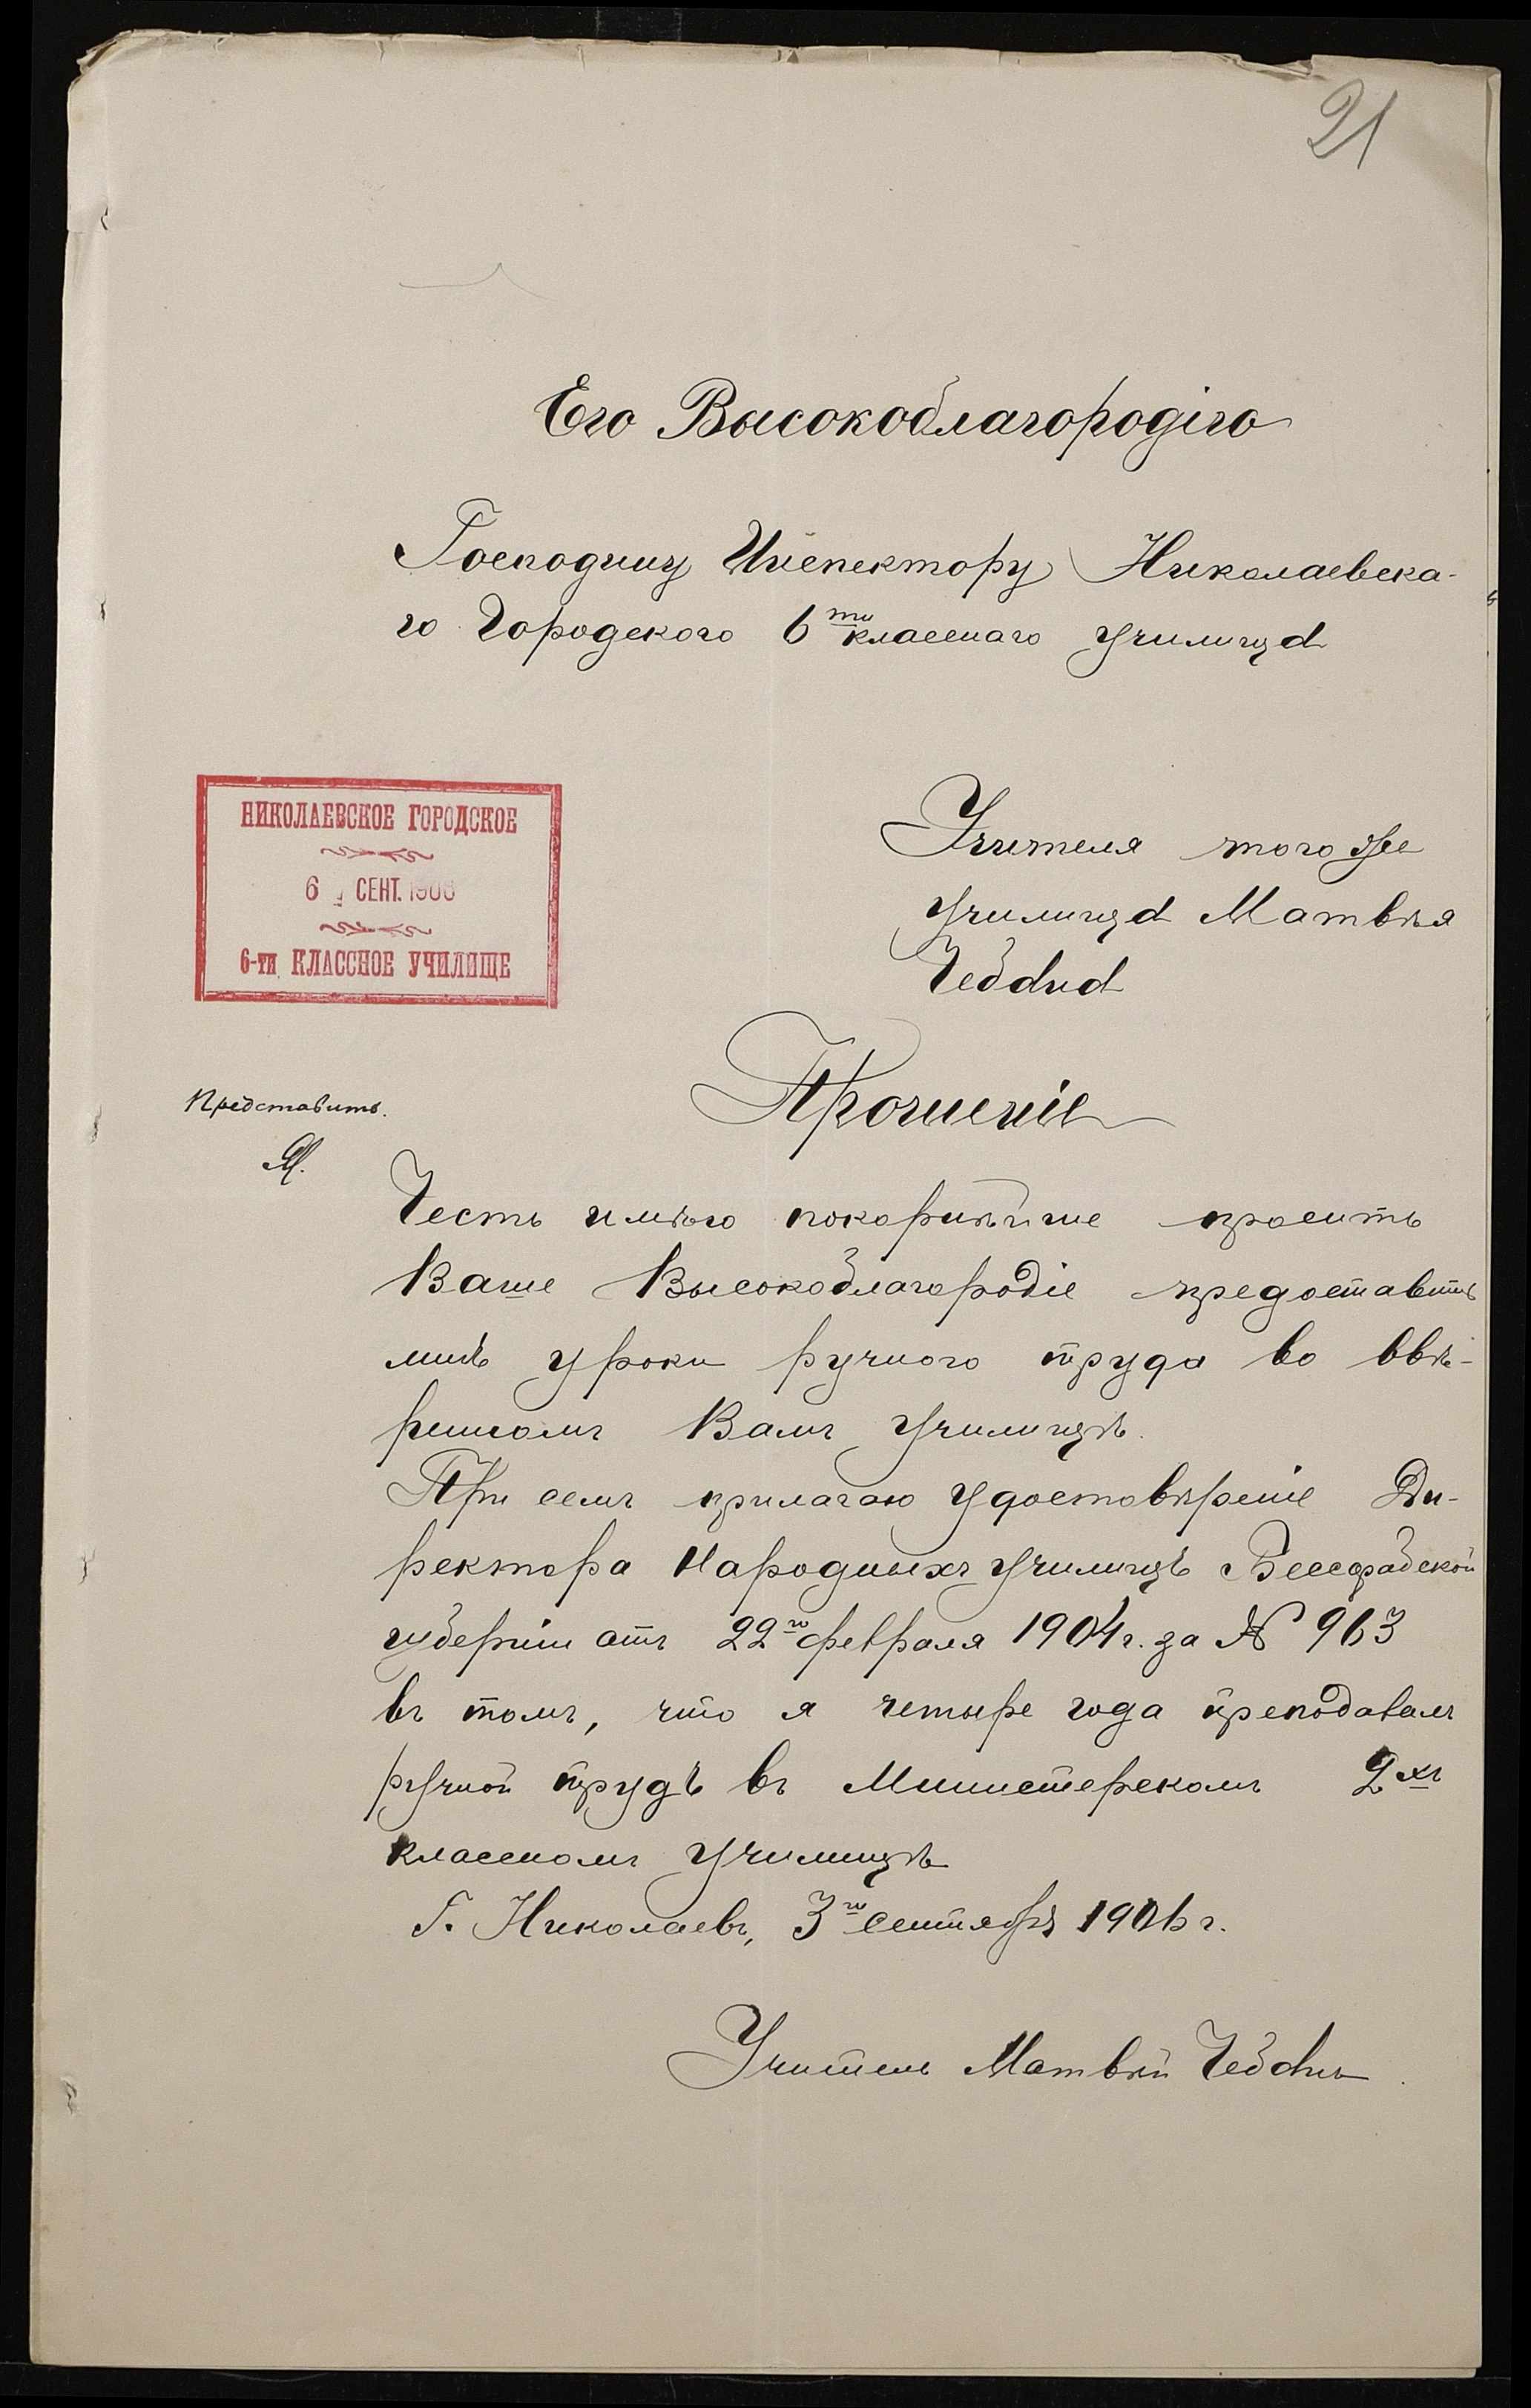 21
Его Высокоблагородію
Господину Инспектору Николаевска-
го Городского 6ти классного училища
НИКОЛАЕВСКОЕ ГОРОДСКОЕ
6 СЕНТ. 1906
6-ти КЛАССНОЕ УЧИЛИЩЕ
Учителя того же
училища Матвѣя
Чебана
Прошеніе
Представить.
Честь имѣю покорнѣйше просить
Ваше Высокоблагородіе предоставить
мнѣ уроки ручного труда во ввѣ-
ренномъ Вамъ училищѣ.
При семъ прилагаю удостовѣреніе Ди-
ректора Народныхъ училищъ Бессарабской
губерніи отъ 22го февраля 1904 г. за № 963
въ томъ, что я четыре года преподавалъ
ручной трудъ въ Министерскомъ 2хъ
классномъ училищѣ
Г. Николаевъ, 3го сентября 1906 г.
Учитель Матвѣй Чебанъ